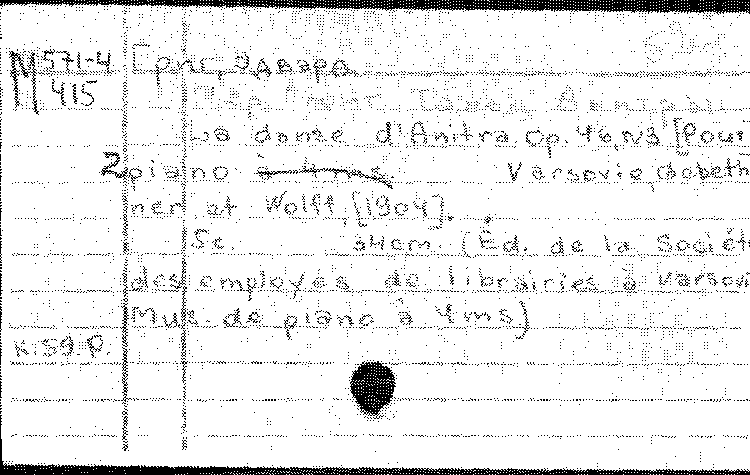 M 571-4 Григ, Эдвард
415 Пер Гюнт Танец Анитры
La danse d'Anitra. Op. 46, N3 [Pour
2 piano à 4 ms. Varsovie, Gebeth
ner et Wolff, [1904].
5c. 34cm. (Éd. de la Société
des employés de librairies à Varsovi
Mus. de piano à 4 ms)
к. 59. р.